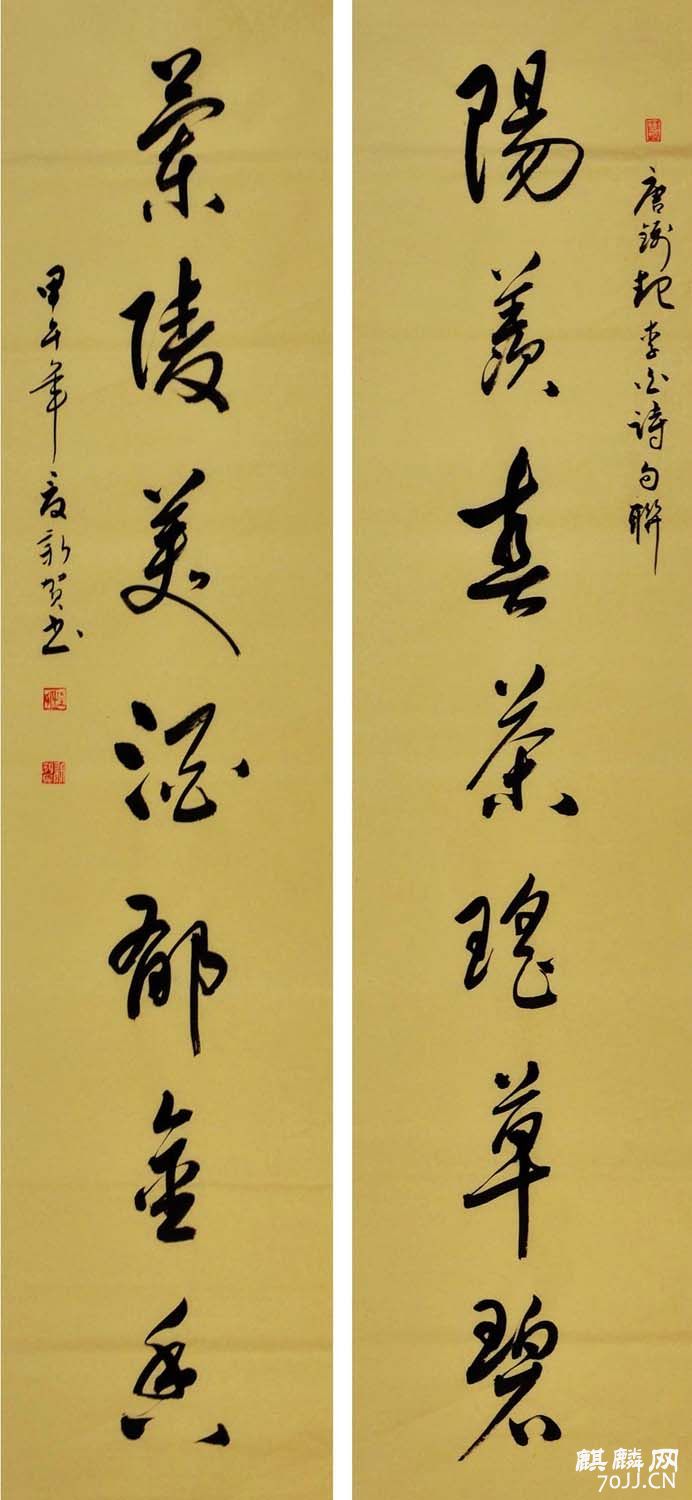 唐錢起李白詩句聯
陽羨春茶瑤草碧
蘭陵美酒郁金香
甲午年夏新贺书
麒麟网
70JJ.CN